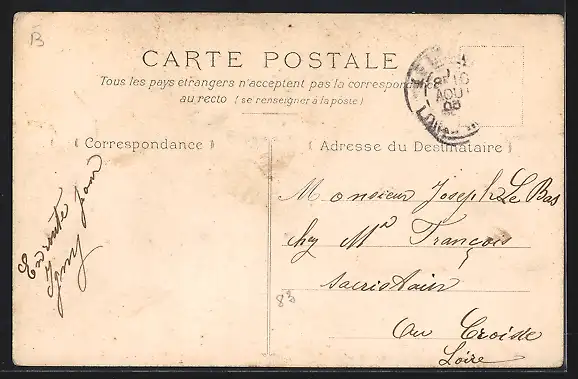 B
CARTE POSTALE
Tous les pays etrangers n'acceptent pas la correspondance
au recto (se renseigner à la poste)
AOUT
08
( Correspondance )
( Adresse du Destinataire )
En route pour
Igny
Monsieur Joseph Le Bas
chez Mr François
sacristain
Au Croisic
Loire